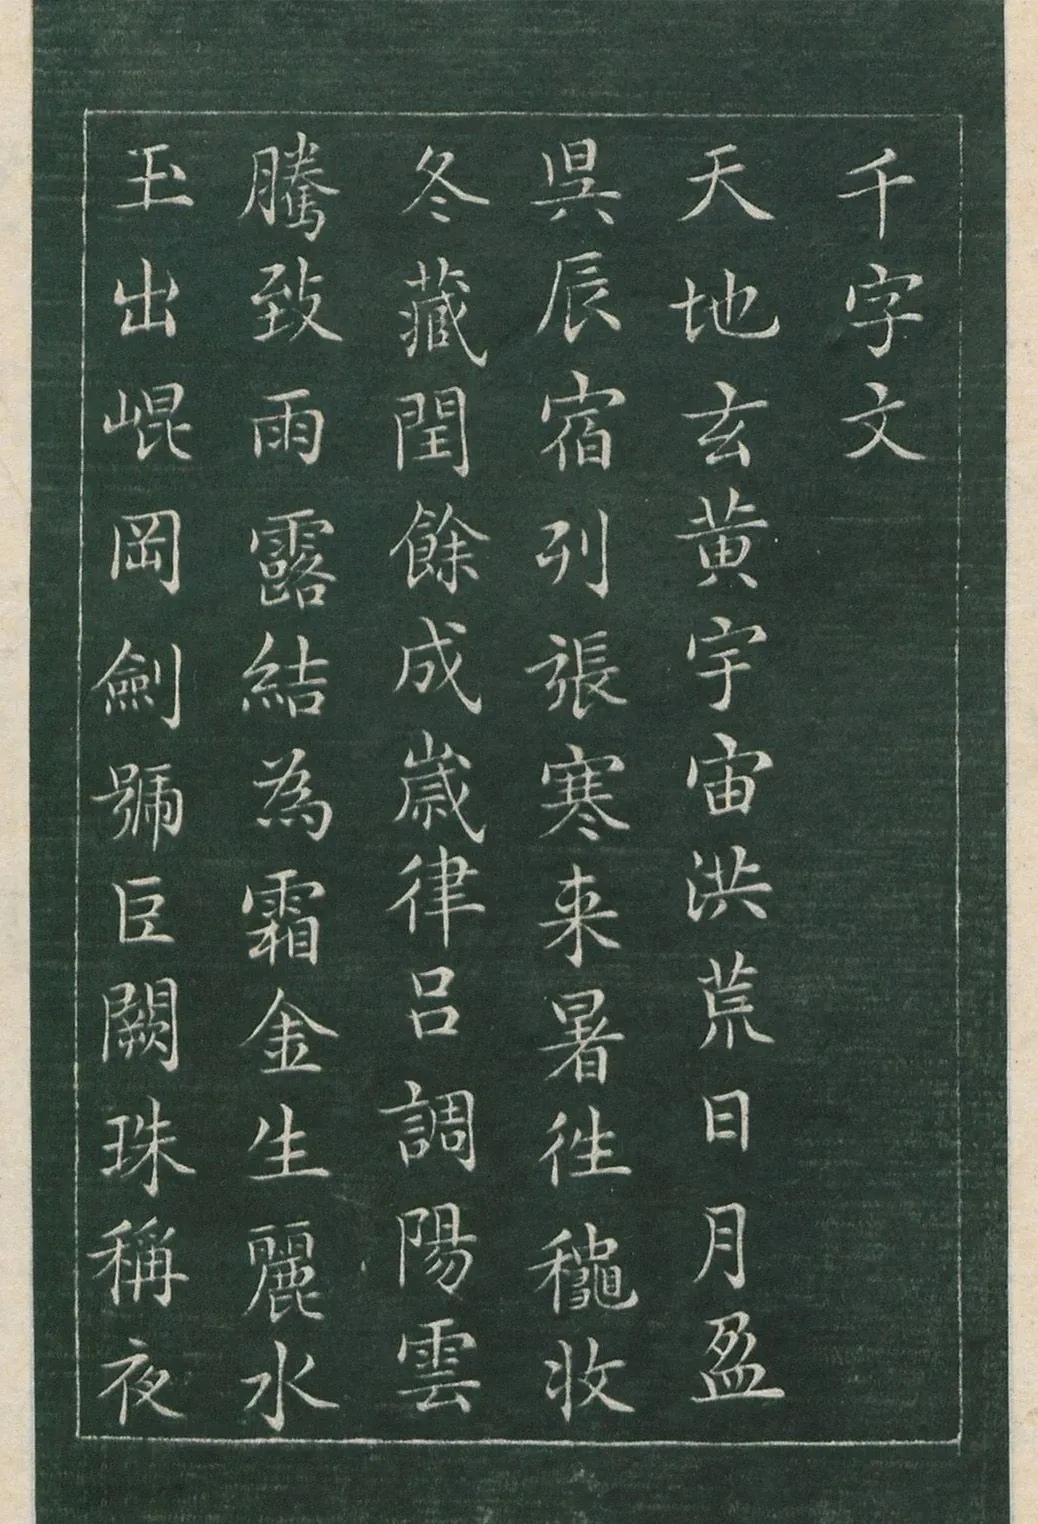 千字文
天地玄黄宇宙洪荒日月盈
昃辰宿列張寒来暑徃穐收
冬藏閏餘成歲律呂調陽雲
騰致雨露結為霜金生麗水
玉出崐岡劍號巨闕珠稱夜